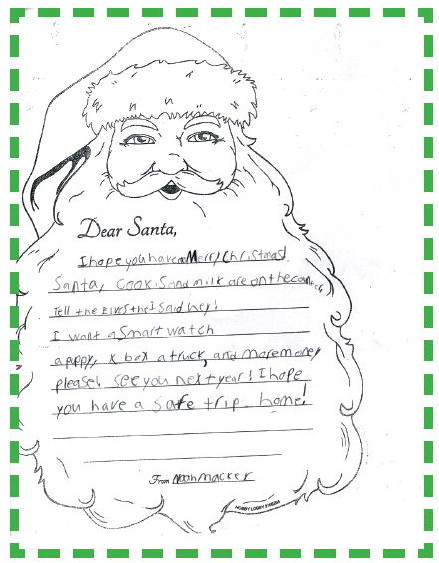 Dear Santa,
I hope you have a Merry Christmas!
Santa, cookis and milk are on the
Tell the Elves the I said hey!
I want a Smart watch
a puppy, x box a truck, and more money
please! see you next year! I hope
you have a safe trip home!
From Noah macker
HOBBY LOBBY